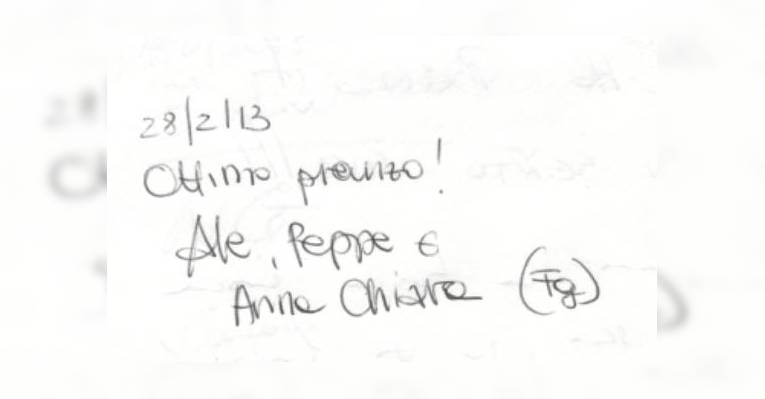 28/2/13
Ottimo pranzo!
Ale, Peppe e
Anna Chiara (Fg)